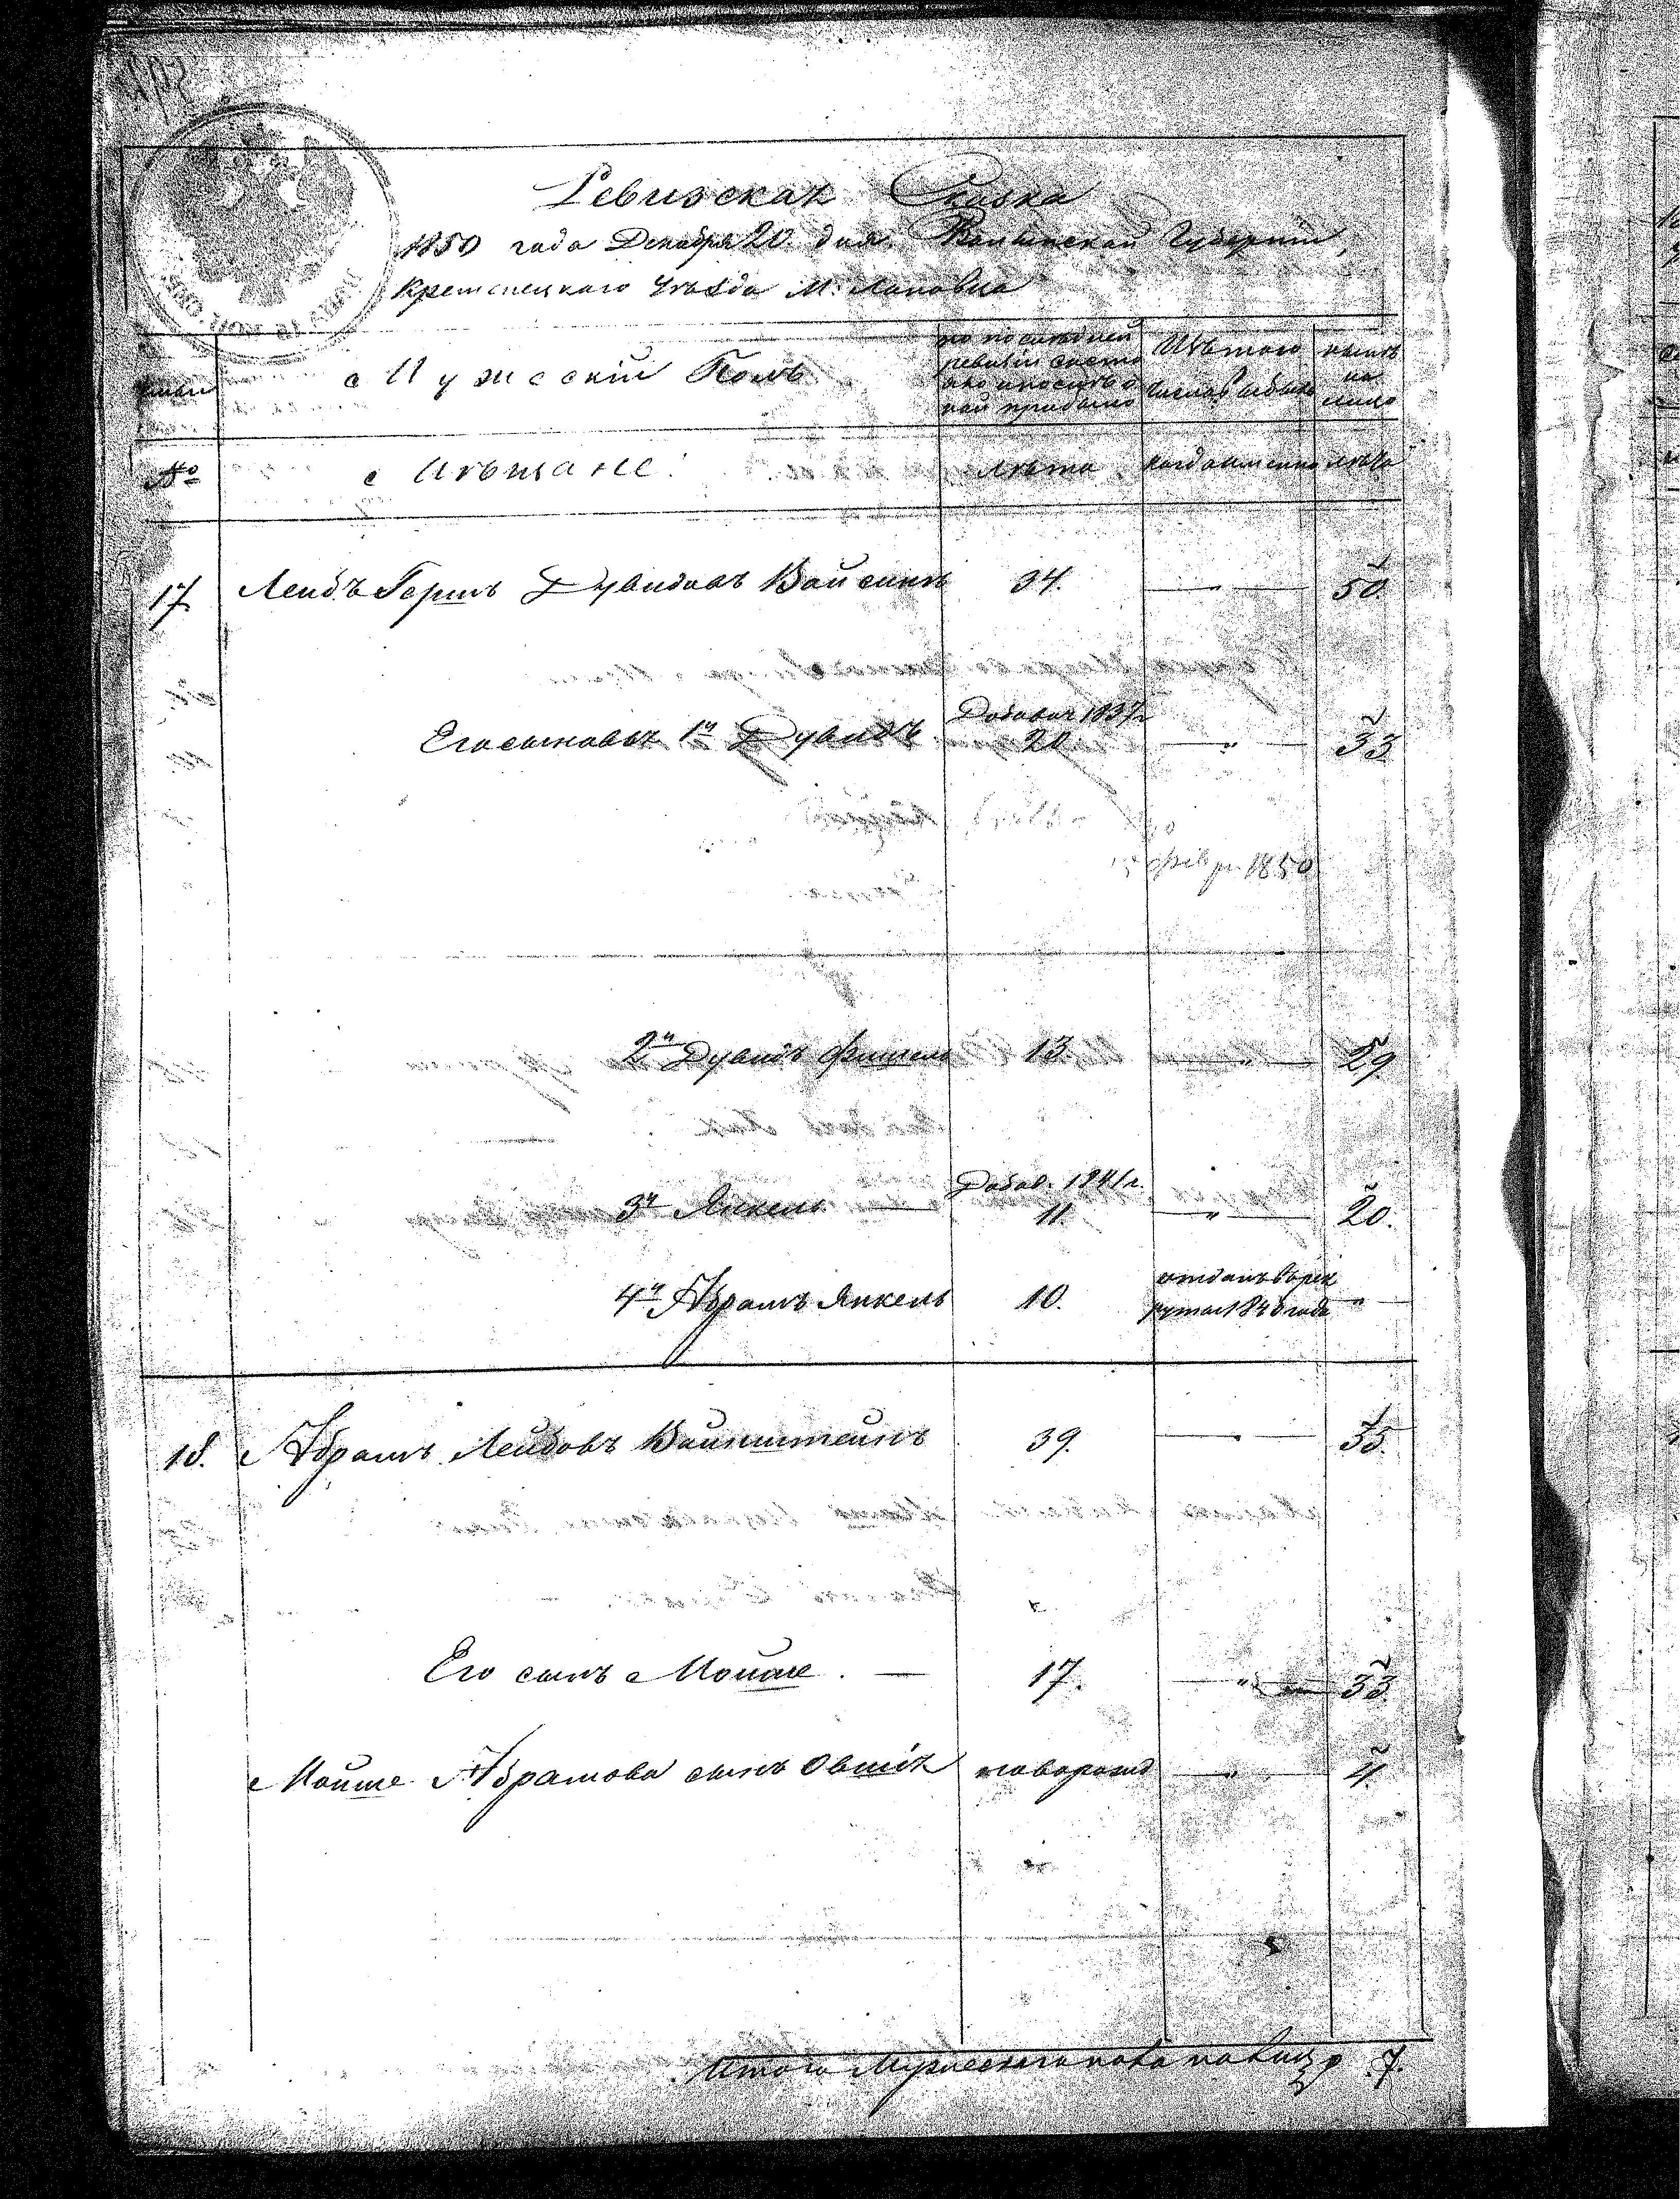 Ревизская Сказка
1850 года Декабря 20. дня. Волынской Губернии,
Кременецкаго Уѣзда М: Лановца
Мужескій Полъ
по послѣдней ревизіи состояло и послѣ оной прибыло
Изъ того числа выбыло
нынѣ на лицо
№ Мѣщане. лѣта когда именно лѣта
17. Лейбъ Гершъ Дувидовъ Вайсинъ 34. — " — 50
Его сыновья 1й Дувидъ Добавл 1837г 20 — " — 33
1850
2й Дувидъ Фишель 13. — " — 29
3й Янкель — Добав. 1841г. 11 — " — 20.
4й Абрамъ Янкель 10. отданъ въ рекруты 1840 года — " —
18. Абрамъ Лейбовъ Вайнштейнъ 39. — " — 55.
Его сынъ Мойше. — 17. — " — 33
Мойше Абрамова сынъ Овшія новорожд — " — 4
Итого Мужескаго пола на лицо 7.